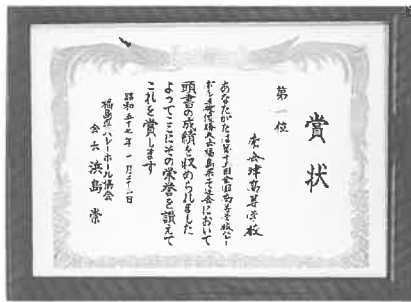 賞状
第一位
南会津高等学校
あなたがたは第十三回全国高等学校バレー
ボール選抜優勝大会福島県予選会において
頭書の成績を収められました
よってここにその栄誉を讃えて
これを賞します
昭和五十七年一月三十一日
福島県バレーボール協会
会長 浜島 崇